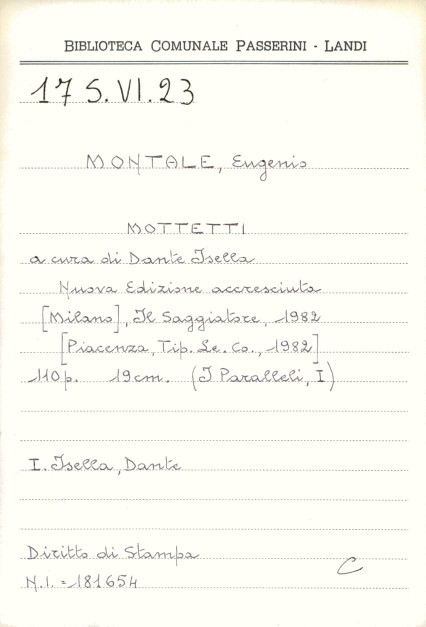 BIBLIOTECA COMUNALE PASSERINI - LANDI
17 S.VI.23
MONTALE, Eugenio
MOTTETTI
a cura di Dante Isella
Nuova Edizione accresciuta
[Milano], Il Saggiatore, 1982
[Piacenza, Tip. Le. Co., 1982]
110 p. 19 cm. (I Paralleli, I)
I. Isella, Dante
Diritto di Stampa
C
N.I. = 181654